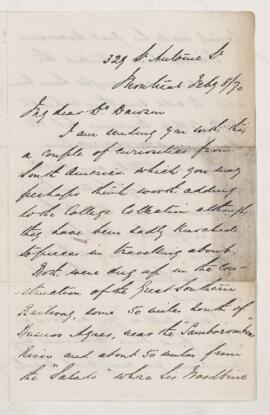 329 St. Antoine St.
Montreal Feby 8/70
My dear Dr Dawson
I am sending you with this
a couple of curiosities from
South America which you may
perhaps think worth adding
to the College Collection although
they have been sadly knocked
to pieces in travelling about.
Both were dug up in the Con-
struction of the Great Southern
Railway, some 50 miles south of
Buenos Ayres, near the "Samborombon"
River and about 50 miles from
the "Salado" where Sir Woodbine